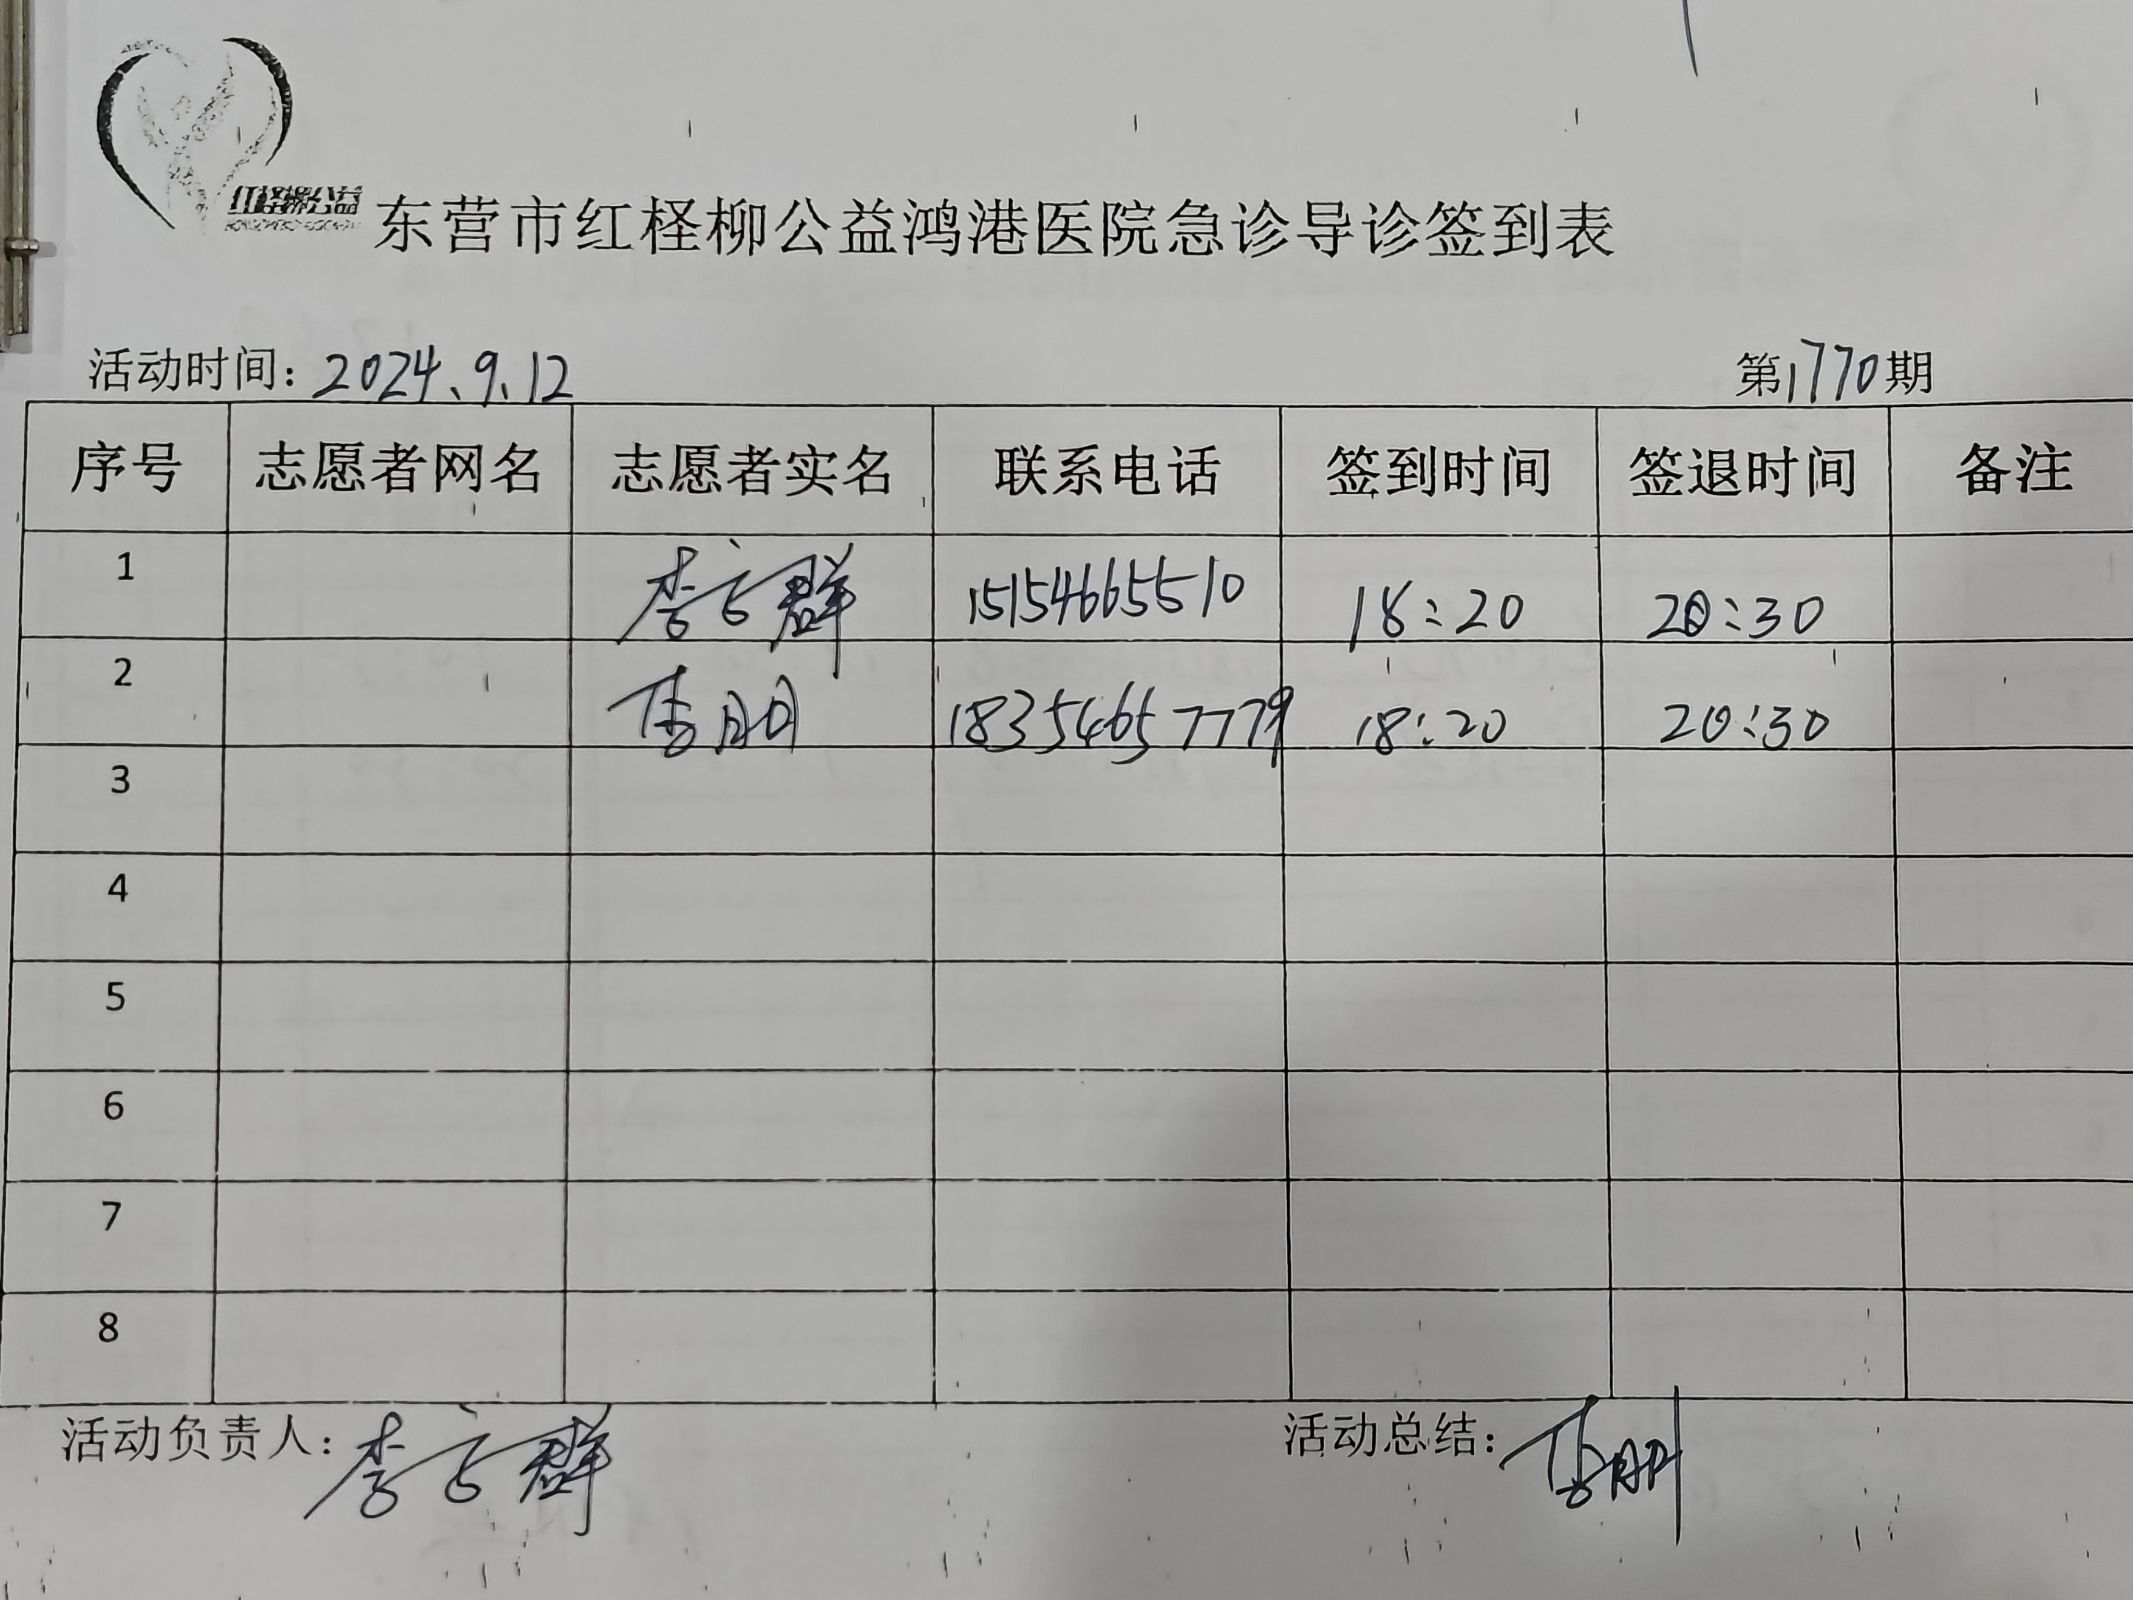 红柽柳公益
东营市红柽柳公益鸿港医院急诊导诊签到表
活动时间：2024、9、12 第1770期
序号 志愿者网名 志愿者实名 联系电话 签到时间 签退时间 备注
1 李立群 15154665510 18:20 20:30
2 李朋 18354657779 18:20 20:30
3
4
5
6
7
8
活动负责人：李立群 活动总结：李朋